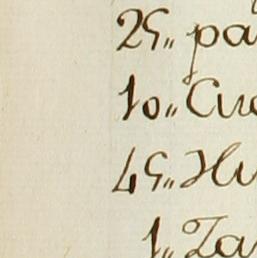 25,, pa
10,, Cu
45,, Hu
1,, Za